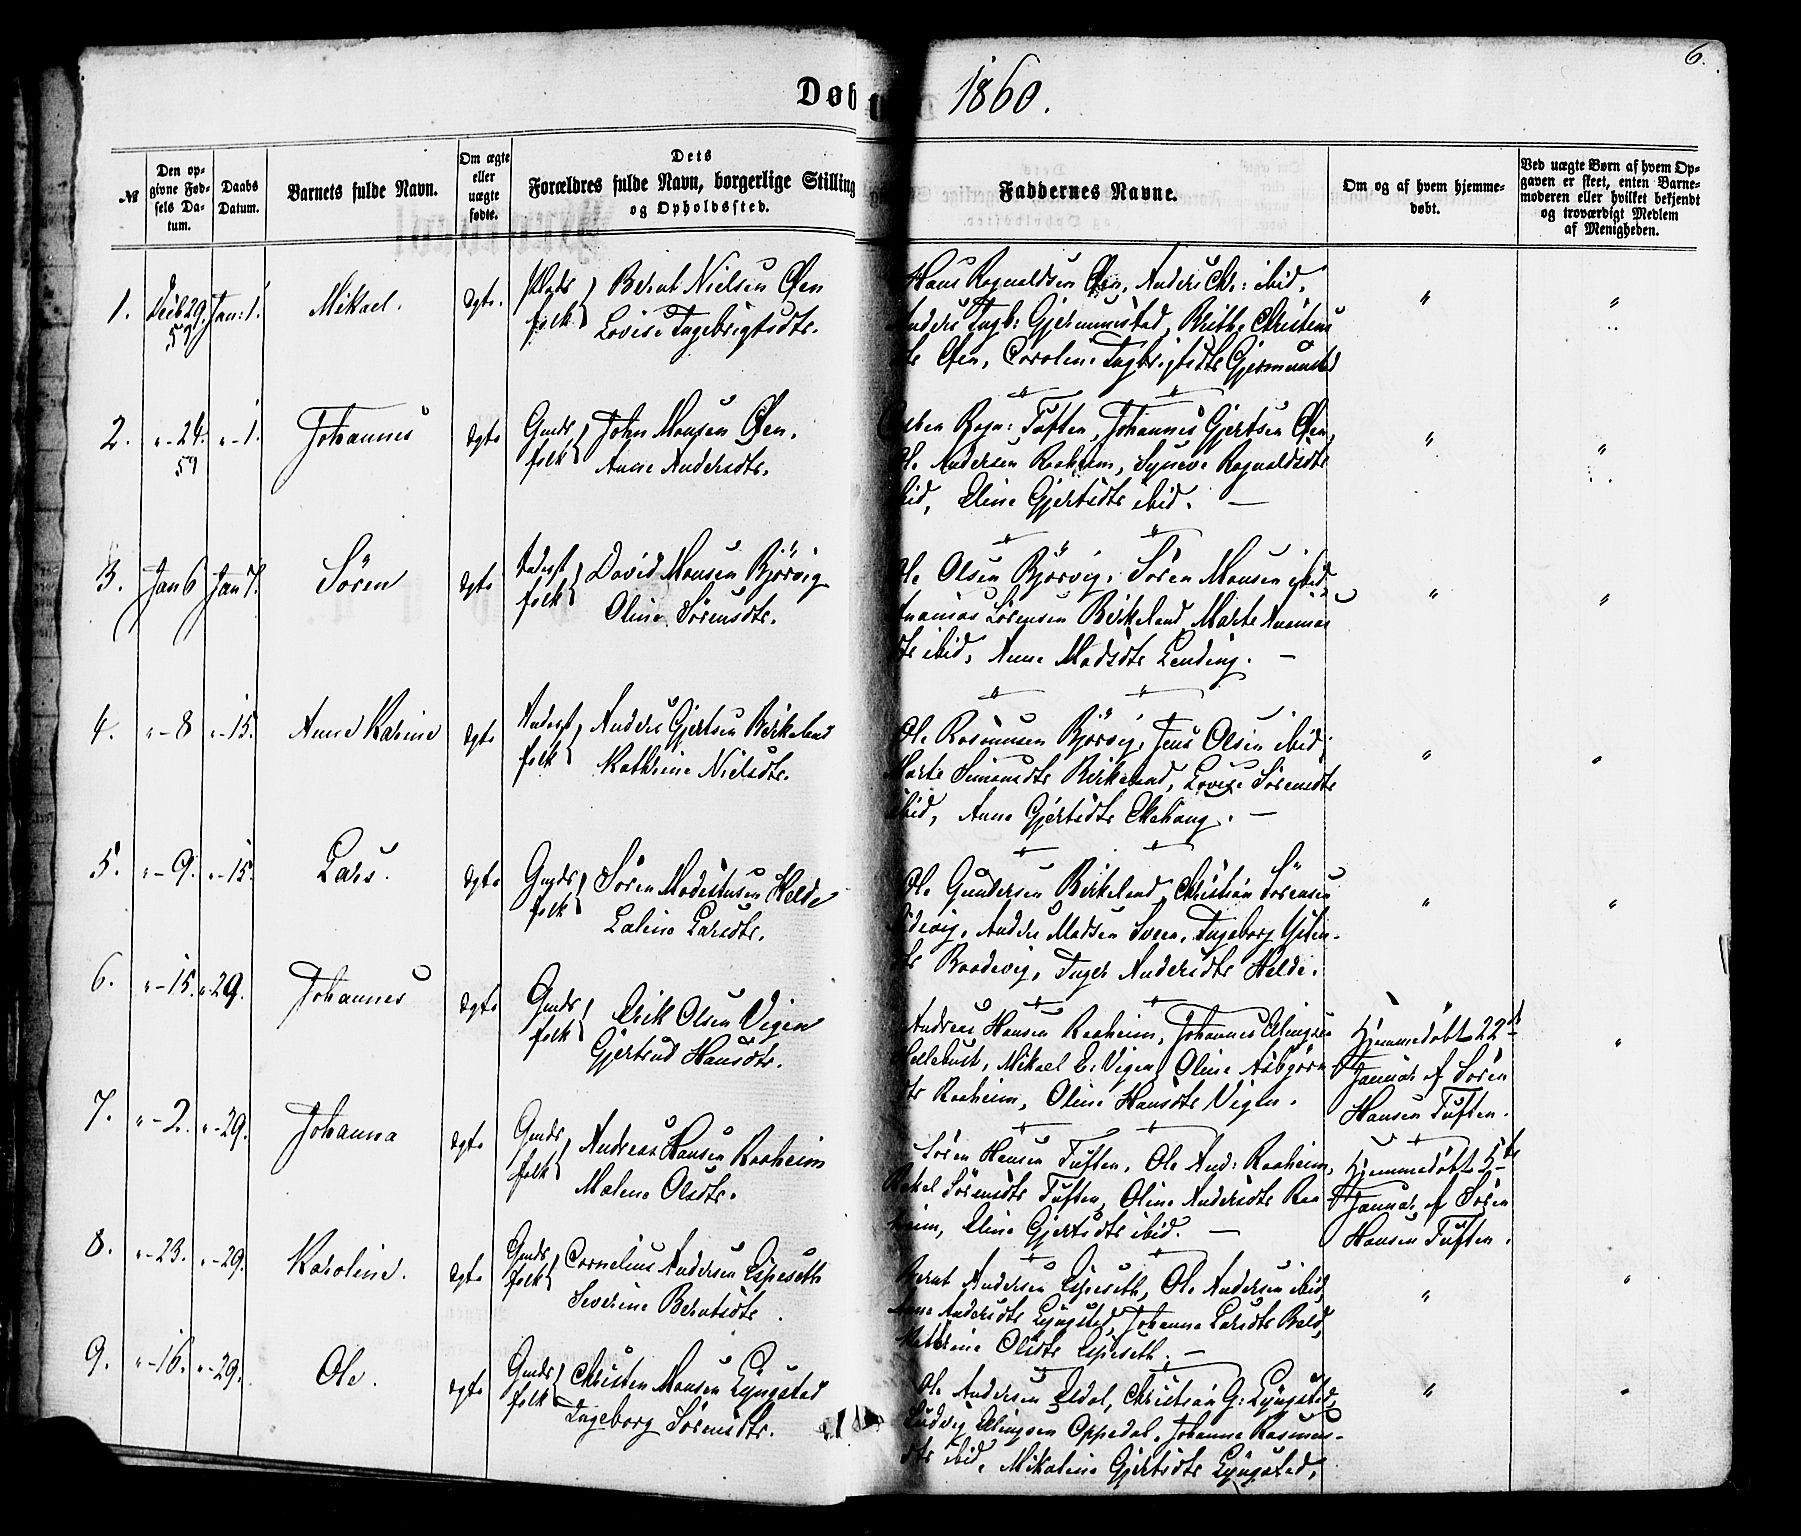 6.
Døbt 1860.
№
Den opgivne Fødsels Datum.
Daabs Datum.
Barnets fulde Navn.
Om ægte eller uægte fødte.
Dets Forældres fulde Navn, borgerlige Stilling og Opholdssted.
Faddernes Navne.
Om og af hvem hjemmedøbt.
Ved uægte Børn af hvem Opgaven er skeet, enten Barnemoderen eller hvilket bekjendt og troværdigt Medlem af Menigheden.
1. Dec 29. 59 Jan: 1. Mikael. ægte. Plads folk Bernt Nielsen Øen
Lovise Ingebrigtsdtr.
Hans Ragnaldsen Øen, Anders Chr: ibid,
Anders Ingb: Gjermundstad, Brithe Christens
dtr Øen, Caroline Ingbrigtsdtr Gjermundstad
2. "-24. 59 "-1. Johannes ægte Gmds folk John Monsen Øen.
Anne Andersdtr.
Rasmus Ragn: Tuften, Johannes Gjertsen Øen,
Ole Andersen Raaheim, Synneve Ragnaldsdtr
ibid, Eline Gjertsdtr ibid. —
3. Jan 6 Jan 7. Sören ægte Inderst folk David Monsen Björvig
Oline Sörensdtr.
Ole Olsen Björvig, Sören Monsen ibid,
Ananias Sörensen Birkeland, Marte Ananias
dtr ibid, Anne Madsdtr Lending. —
4. "-8 "-15. Anne Karine ægte Inderst folk Anders Gjertsen Birkeland
Kathrine Nielsdtr.
Ole Rasmusen Björvig, Jens Olsen ibid,
Marte Simonsdtr Birkeland, Lovise Sörensdtr
ibid, Anne Gjertsdtr Ekehaug. —
5. "-9. "-15. Lars. ægte Gmds folk Sören Modestusen Helde
Laline Larsdtr.
Ole Gundersen Birkeland, Christian Sörensen
Anders Madsen Sveen, Ingeborg
dtr Baadevig, Inger Andersdtr Helde.
6. "-15. "-29. Johannes ægte Gmds folk Erik Olsen Vigen
Gjertrud Hansdtr.
Andreas Hansen Raaheim, Johannes Elingsen
Hellebust, Mikael E. Vigen, Oline Asbjörns
dtr Raaheim, Oline Hansdtr Vigen.
Hjemmedøbt 22de
Januar af Sören
Hansen Tuften.
7. "-2. "-29. Johanna ægte Gmds folk Andreas Hansen Raaheim
Malene Olsdtr.
Sören Hansen Tuften, Ole And: Raaheim,
Rakel Sörensdtr Tuften, Oline Andersdtr Raa
heim, Eline Gjertsdtr ibid. —
Hjemmedøbt 5te
Januar af Sören
Hansen Tuften.
8. "-23. "-29. Karoline. ægte Gmds folk Cornelius Andersen Espeseth
Severine Berntsdtr.
Bernt Andersen Espeseth, Ole Andersen ibid,
Anne Andersdtr Lyngstad, Johanne Larsdtr Bald,
Kathrine Olsdtr Espeseth. —
9. "-16. "-29. Ole. ægte Gmds folk Christen Monsen Lyngstad
Ingeborg Sörensdtr.
Ole Andersen Eldal, Christian G: Lyngstad,
Ludvig Elingsen Oppedal, Johanne Rasmus-
dtr ibid, Mikaline Gjertsdtr Lyngstad.